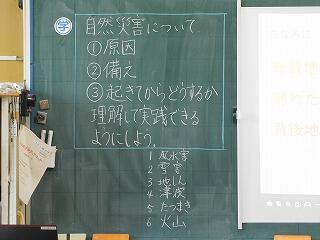 学
自然災害について
①原因
②備え
③起きてからどうするか
理解して実践できる
ようにしよう。
1 風水害
2 雪害
3 地しん
4 津波
5 たつまき
6 火山